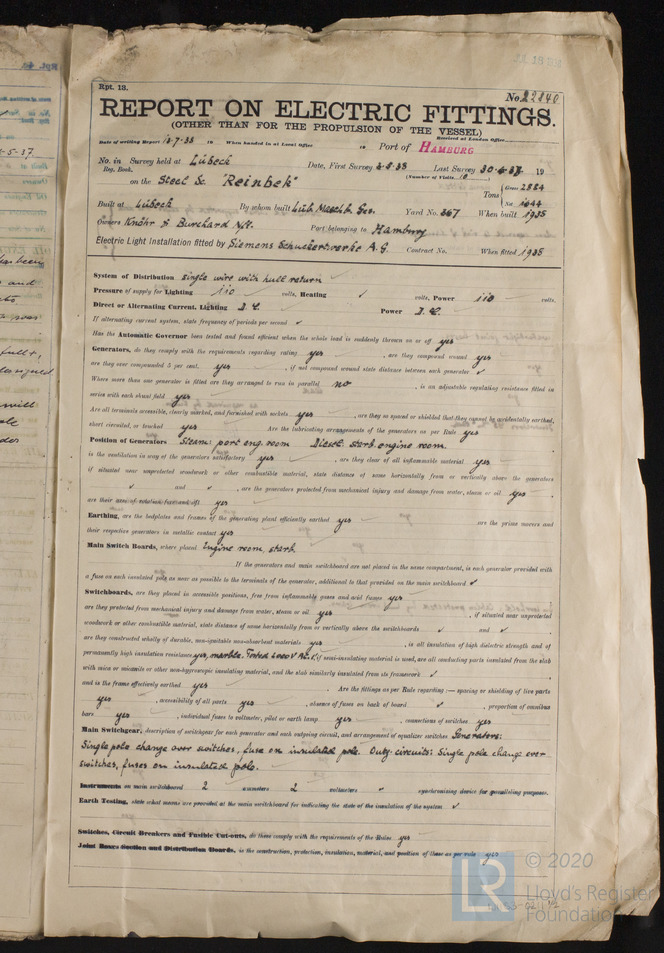 Rpt. 13.
No. 22840
REPORT ON ELECTRIC FITTINGS.
(OTHER THAN FOR THE PROPULSION OF THE VESSEL)
Received at London Office
Date of writing Report 19 When handed in at Local Office 19 Port of HAMBURG
No. in Survey held at Lübeck Date, First Survey Last Survey 19
Reg. Book. (Number of Visits 10)
on the Steel "Reinbek" Tons Gross 2884
Net 1644
Built at Lübeck By whom built Lüb. Masch. Ges. Yard No. 367 When built 1935
Owners Knöhr & Burchard Nfl. Port belonging to Hamburg
Electric Light Installation fitted by Siemens Schuckertwerke A.G. Contract No. When fitted 1935
System of Distribution Single wire with hull return
Pressure of supply for Lighting 110 volts, Heating ✓ volts, Power 110 volts.
Direct or Alternating Current, Lighting D.C. Power D.C.
If alternating current system, state frequency of periods per second ✓
Has the Automatic Governor been tested and found efficient when the whole load is suddenly thrown on or off yes
Generators, do they comply with the requirements regarding rating yes, are they compound wound yes
are they over compounded 5 per cent. yes, if not compound wound state distance between each generator ✓
Where more than one generator is fitted are they arranged to run in parallel no, is an adjustable regulating resistance fitted in
series with each shunt field yes
Are all terminals accessible, clearly marked, and furnished with sockets yes, are they so spaced or shielded that they cannot be accidentally earthed,
short circuited, or touched yes Are the lubricating arrangements of the generators as per Rule yes
Position of Generators Steam: port eng. room Diesel: starb. engine room.
is the ventilation in way of the generators satisfactory yes, are they clear of all inflammable material yes
if situated near unprotected woodwork or other combustible material, state distance of same horizontally from or vertically above the generators
✓ and ✓, are the generators protected from mechanical injury and damage from water, steam or oil yes,
are their axes of rotation fore and aft yes
Earthing, are the bedplates and frames of the generating plant efficiently earthed yes are the prime movers and
their respective generators in metallic contact yes
Main Switch Boards, where placed Engine room, starb.
If the generators and main switchboard are not placed in the same compartment, is each generator provided with
a fuse on each insulated pole as near as possible to the terminals of the generator, additional to that provided on the main switchboard ✓
Switchboards, are they placed in accessible positions, free from inflammable gases and acid fumes yes
are they protected from mechanical injury and damage from water, steam or oil yes, if situated near unprotected
woodwork or other combustible material, state distance of same horizontally from or vertically above the switchboards ✓ and ✓,
are they constructed wholly of durable, non-ignitable non-absorbent materials yes, is all insulation of high dielectric strength and of
permanently high insulation resistance yes, marble. Tested 2000 V, if semi-insulating material is used, are all conducting parts insulated from the slab
with mica or micanite or other non-hygroscopic insulating material, and the slab similarly insulated from its framework ✓,
and is the frame effectively earthed yes. Are the fittings as per Rule regarding:— spacing or shielding of live parts
yes, accessibility of all parts yes, absence of fuses on back of board ✓, proportion of omnibus
bars yes, individual fuses to voltmeter, pilot or earth lamp yes, connections of switches yes
Main Switchgear, description of switchgear for each generator and each outgoing circuit, and arrangement of equalizer switches Generators:
Single pole change over switches, fuse on insulated pole. Outg. circuits: Single pole change over
switches, fuses on insulated pole.
Instruments on main switchboard 2 ammeters 2 voltmeters ✓ synchronising device for paralleling purposes.
Earth Testing, state what means are provided at the main switchboard for indicating the state of the insulation of the system ✓
Switches, Circuit Breakers and Fusible Cut-outs, do these comply with the requirements of the Rules yes
Joint Boxes Section and Distribution Boards, is the construction, protection, insulation, material, and position of these as per rule yes
© 2020
Lloyd's Register
Foundation
LR